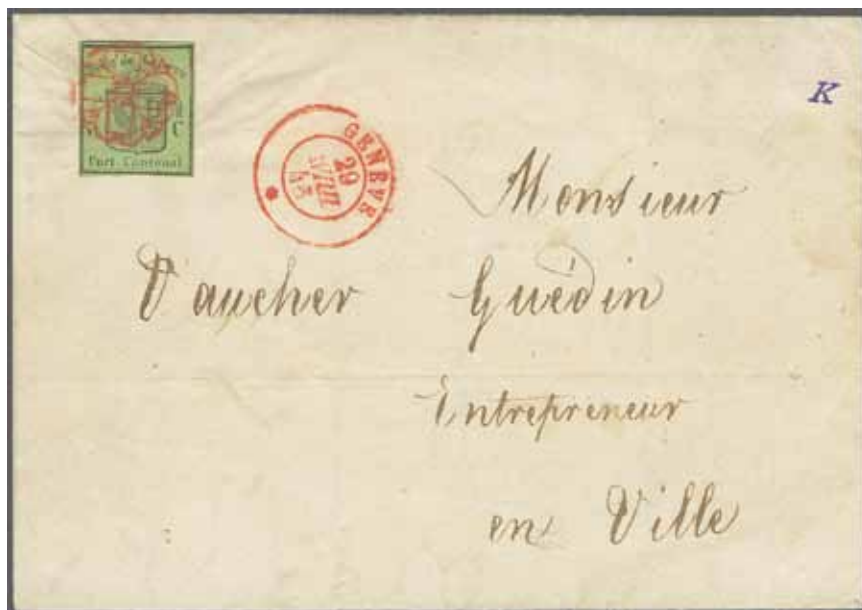 K
Port Cantonal
GENEVE
29
45
Monsieur
Vaucher Guédin
Entrepreneur
en Ville